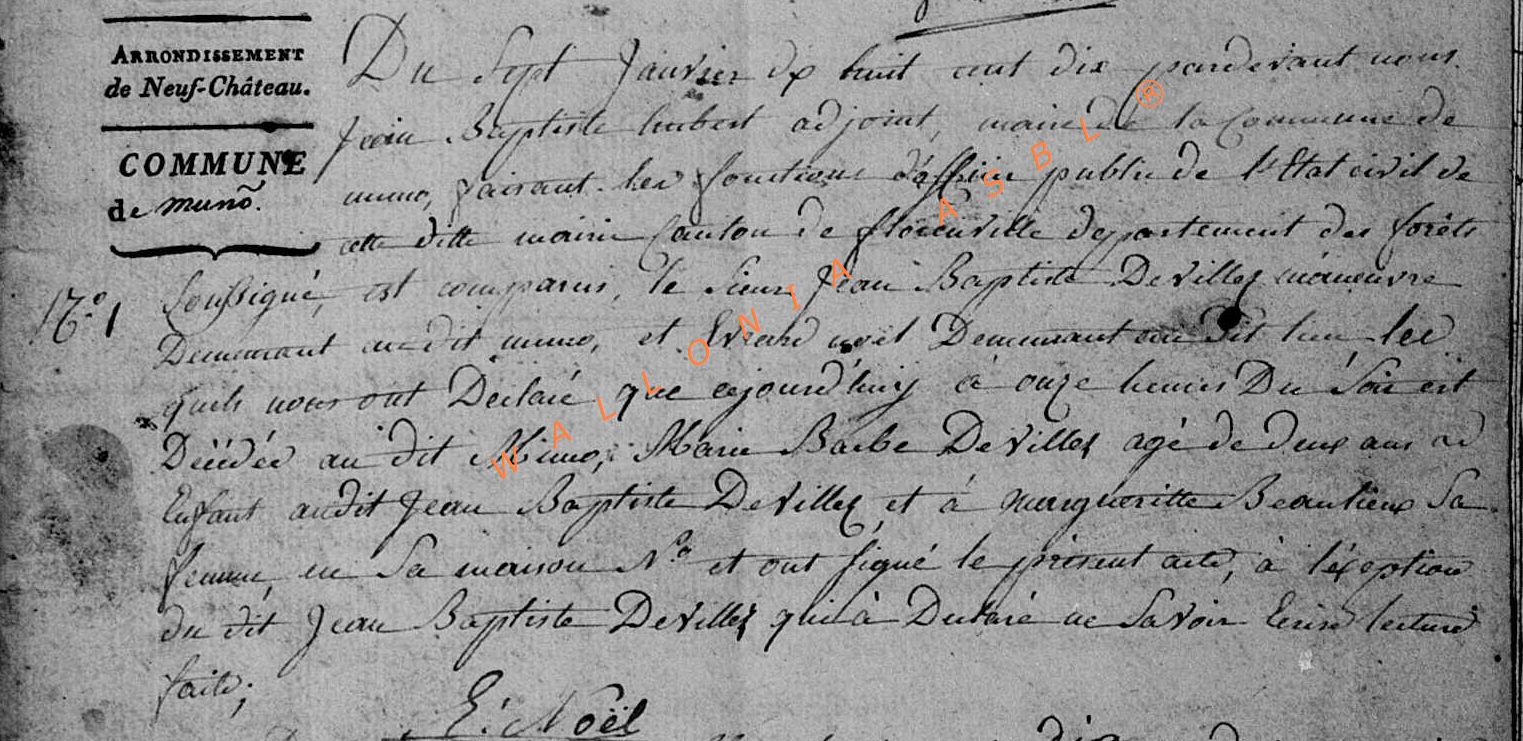 ARRONDISSEMENT
de Neuf-Château.
COMMUNE
de muno.
Du Sept Janvier dix huit cent dix pardevant nous
Jean Baptiste hubert adjoint, maire de la Commune de
muno, faisant les fonctions d'officier public de l'Etat civil de
cette ditte mairie Canton de florenville departement des forêts
N.° 1
Soussigné, est comparus, le Sieur Jean Baptiste DeVillez manœuvre
Demeurant au dit muno, et Evrard noël Demeurant au dit lieu les
quels nous ont Déclaré que cejourd'huy à onze heures Du Soir est
Décédée au dit Muno, Marie Barbe DeVillez agé de deux ans
Enfant audit Jean Baptiste DeVillez et à margueritte Beaulieux Sa
femme, en Sa maison N.° et ont signé le présent acte, à l'exeption
du dit Jean Baptiste DeVillez qui à Déclaré ne Savoir Ecrire lecture
faite;
E. Noël
WALLONIA ASBL ®